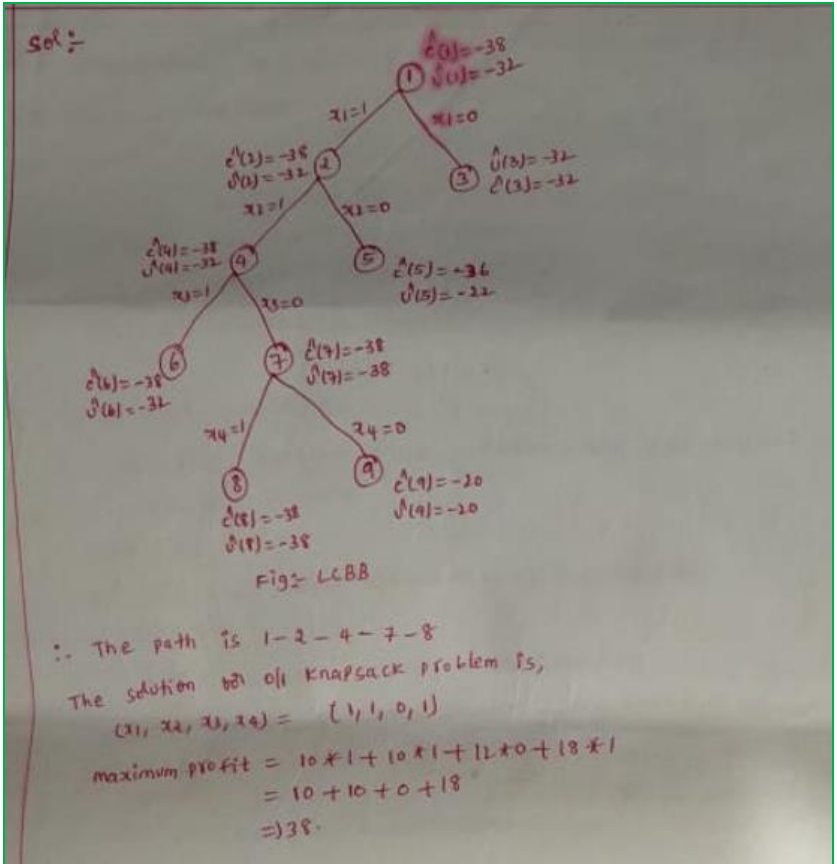 Sol :-
ĉ(1)=-38
û(1)=-32
1
x1=1
x1=0
ĉ(2)=-38
û(2)=-32
2
3
û(3)=-32
ĉ(3)=-32
x2=1
x2=0
ĉ(4)=-38
û(4)=-32
4
5
ĉ(5)=-36
û(5)=-22
x3=1
x3=0
6
ĉ(6)=-38
û(6)=-32
7
ĉ(7)=-38
û(7)=-38
x4=1
x4=0
8
9
ĉ(9)=-20
û(9)=-20
ĉ(8)=-38
û(8)=-38
Fig:- LCBB
∴ The path is 1-2-4-7-8
The solution for 0/1 knapsack problem is,
(x1, x2, x3, x4) = (1, 1, 0, 1)
maximum profit = 10*1+10*1+12*0+18*1
= 10+10+0+18
=) 38.